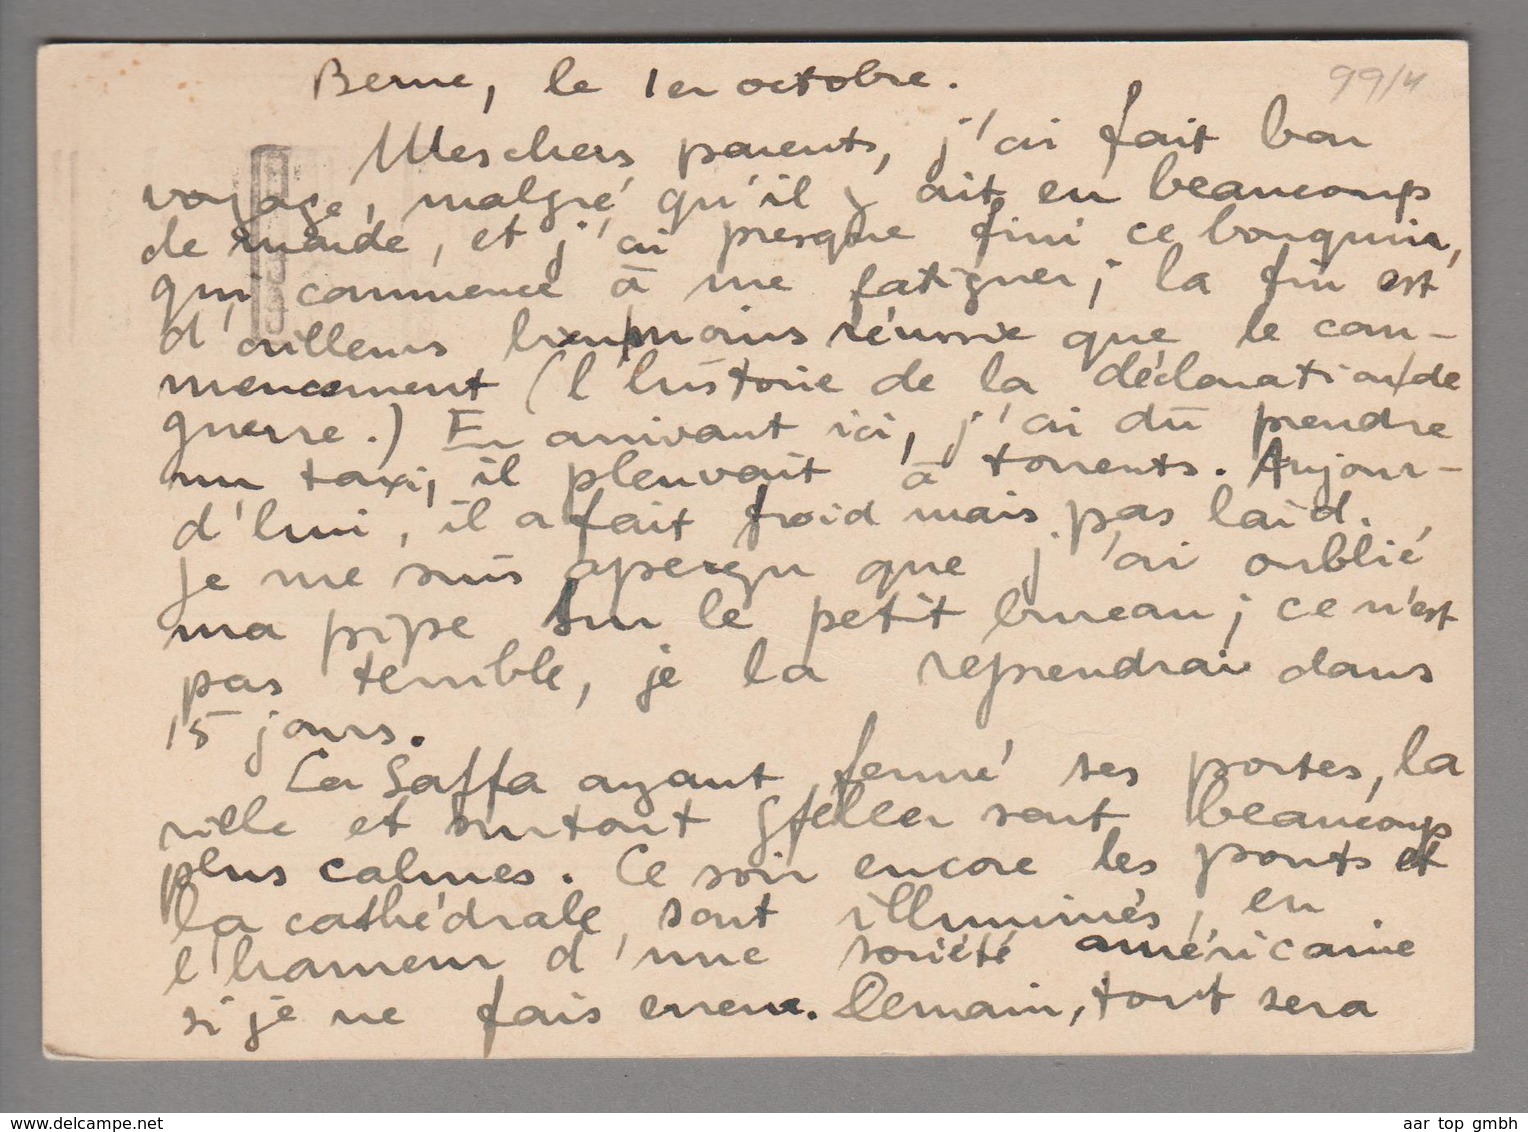 99/4
Berne, le 1er octobre.
Mes chers parents, j'ai fait bon
voyage, malgré qu'il y ait eu beaucoup
de monde, et j'ai presque fini ce bouquin,
qui commence à me fatiguer; la fin est
d'ailleurs bien moins réussie que le com-
mencement (l'histoire de la déclaration de
guerre.) En arrivant ici, j'ai dû prendre
un taxi, il pleuvait à torrents. Aujour-
d'hui, il a fait froid mais pas laid.
Je me suis aperçu que j'ai oublié
ma pipe sur le petit bureau; ce n'est
pas terrible, je la reprendrai dans
15 jours.
La Saffa ayant fermé ses portes, la
ville et surtout Gfeller sont beaucoup
plus calmes. Ce soir encore les ponts et
la cathédrale sont illuminés, en
l'honneur d'une société américaine
si je ne fais erreur. Demain, tout sera
www.delcampe.net
aar top gmbh